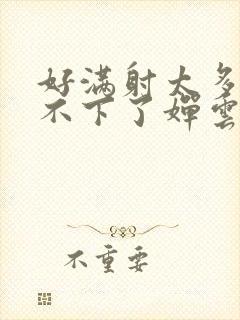 好满射太多
不下了婵雲
不重要